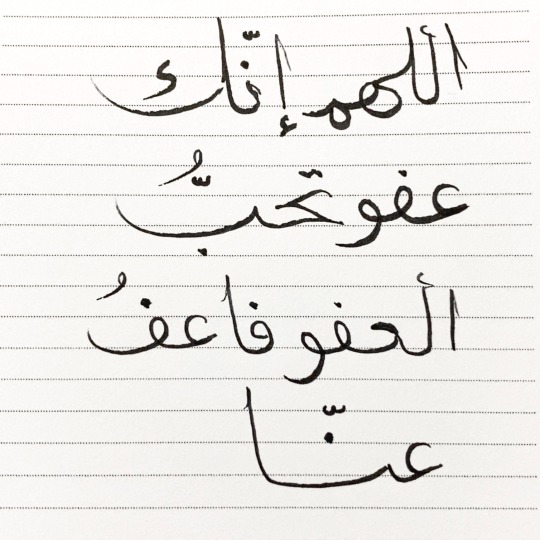 اللهم إنّك
عفو تحبُّ
العفو فاعفُ
عنّا